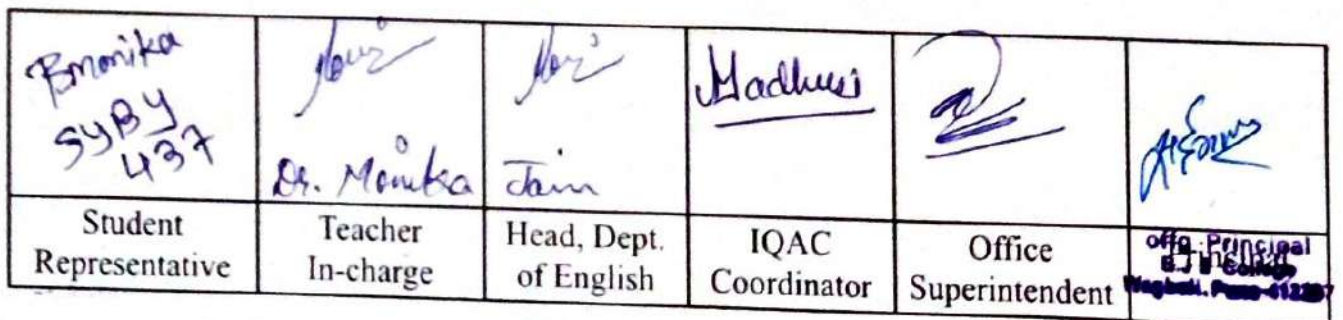 Bmonika
SYBY
437
Dr. Monika Jain
Madhuri
Student
Representative
Teacher
In-charge
Head, Dept.
of English
IQAC
Coordinator
Office
Superintendent
offg. Principal
Principal
College
Wagholi, Pune-412207